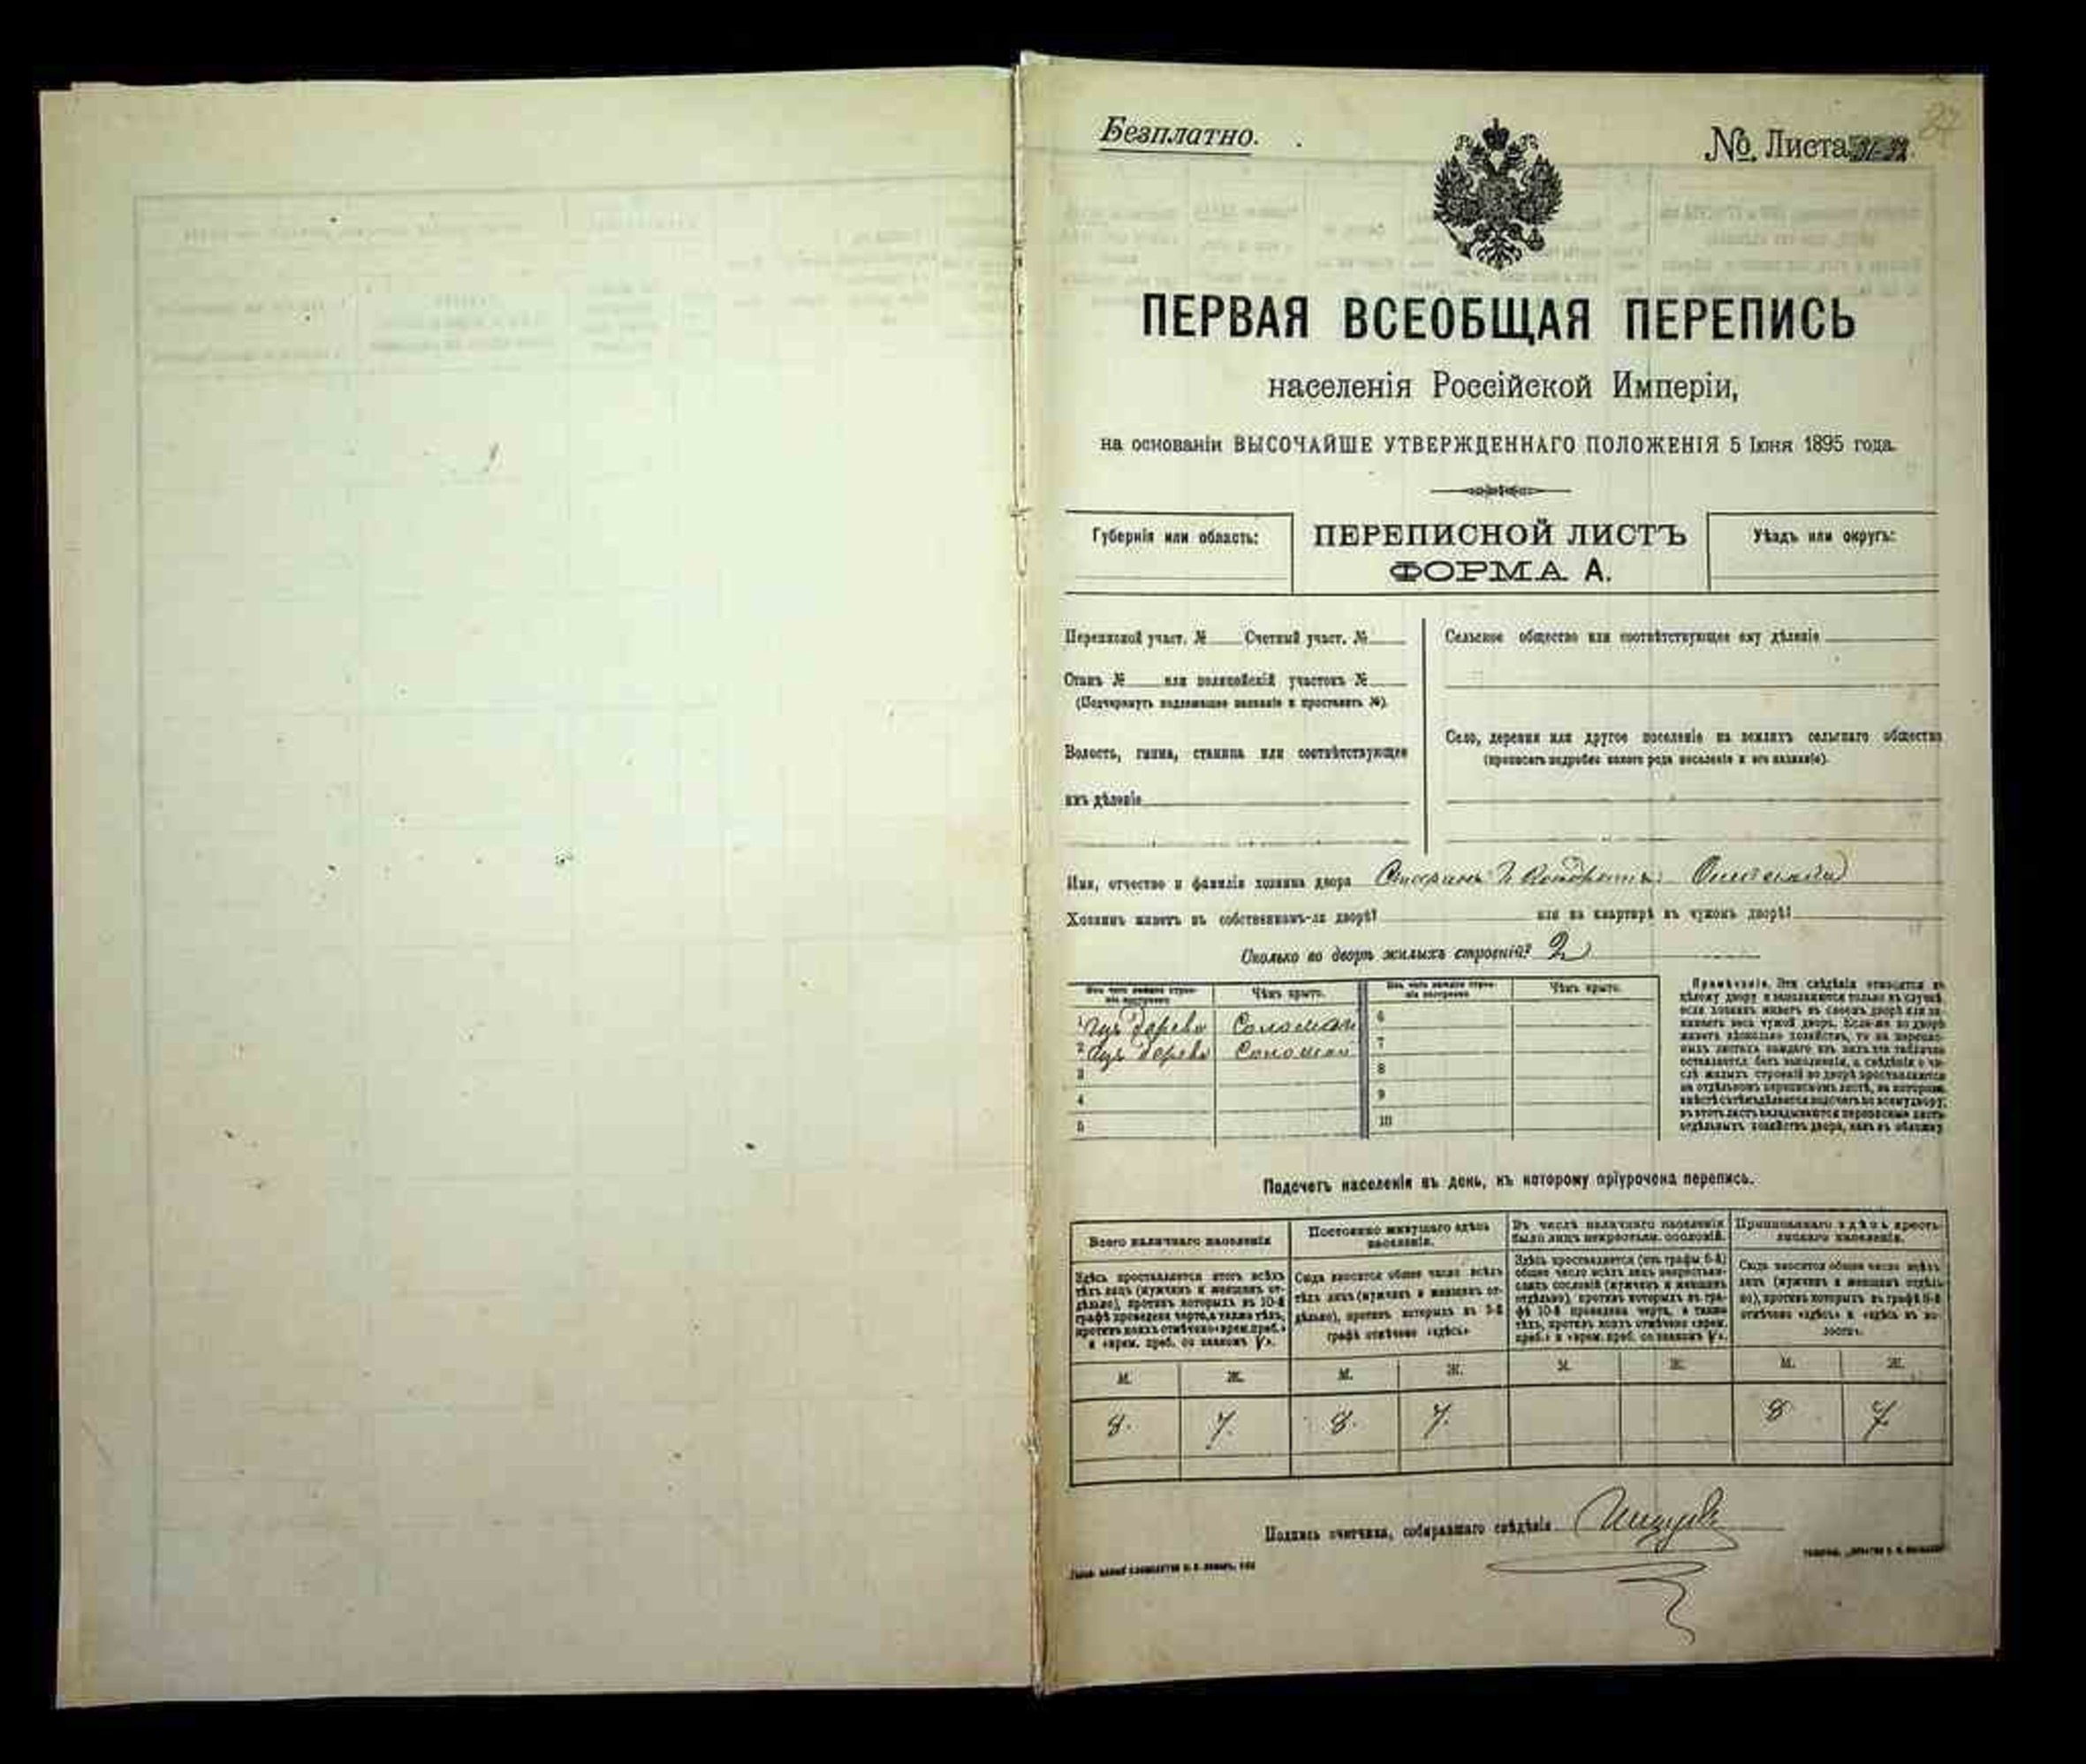 Безплатно.
№. Листа
ПЕРВАЯ ВСЕОБЩАЯ ПЕРЕПИСЬ
населенія Россійской Имперіи,
на основаніи ВЫСОЧАЙШЕ УТВЕРЖДЕННАГО ПОЛОЖЕНІЯ 5 Іюня 1895 года.
Губернія или область:
ПЕРЕПИСНОЙ ЛИСТЪ
ФОРМА А.
Уѣздъ или округъ:
Переписной участ. № Счетный участ. №
Станъ № или полицейскій участокъ №
(Подчеркнуть надлежащее названіе и проставить №).
Волость, гмина, станица или соотвѣтствующее
имъ дѣленіе
Сельское общество или соотвѣтствующее ему дѣленіе
Село, деревня или другое поселеніе на земляхъ сельскаго общества
(прописать подробно какого рода поселеніе и его названіе).
Имя, отчество и фамилія хозяина двора
Хозяинъ живетъ въ собственномъ-ли дворѣ? или на квартирѣ въ чужомъ дворѣ?
Сколько во дворѣ жилыхъ строеній? 2
Изъ чего каждое строеніе построено
Чѣмъ крыто.
Изъ чего каждое строеніе построено
Чѣмъ крыто.
1 дерева
2 дерева
3
4
5
6
7
8
9
10
Примѣчаніе. Эти свѣдѣнія относятся къ
цѣлому двору и заполняются только въ случаѣ,
если хозяинъ живетъ въ своемъ дворѣ или за-
нимаетъ весь чужой дворъ. Если-же во дворѣ
живетъ нѣсколько хозяйствъ, то на перепис-
ныхъ листахъ каждаго изъ нихъ эта табличка
оставляется безъ заполненія, а свѣдѣнія о чи-
слѣ жилыхъ строеній во дворѣ проставляются
на отдѣльномъ переписномъ листѣ, на которомъ
вмѣстѣ съ тѣмъ дѣлается подсчетъ по всему двору;
въ этотъ листъ вкладываются переписные листы
отдѣльныхъ хозяйствъ двора, какъ въ обложку.
Подсчетъ населенія въ день, къ которому пріурочена перепись.
Всего наличнаго населенія
Постоянно живущаго здѣсь
населенія.
Въ числѣ наличнаго населенія
было лицъ некрестьян. сословій.
Приписаннаго здѣсь кресть-
янскаго населенія.
Здѣсь проставляется итогъ всѣхъ
тѣхъ лицъ (мужчинъ и женщинъ от-
дѣльно), противъ которыхъ въ 10-й
графѣ проведена черта, а также тѣхъ,
противъ коихъ отмѣчено «врем. преб.»
и «врем. преб. со знакомъ V».
Сюда вносится общее число всѣхъ
тѣхъ лицъ (мужчинъ и женщинъ от-
дѣльно), противъ которыхъ въ 9-й
графѣ отмѣчено «здѣсь»
Здѣсь проставляется (изъ графы 6-й)
общее число всѣхъ лицъ некрестьян-
скихъ сословій (мужчинъ и женщинъ
отдѣльно), противъ которыхъ въ гра-
фѣ 10-й проведена черта, а также
тѣхъ, противъ коихъ отмѣчено «врем.
преб.» и «врем. преб. со знакомъ V».
Сюда вносится общее число всѣхъ
лицъ (мужчинъ и женщинъ отдѣль-
но), противъ которыхъ въ графѣ 8-й
отмѣчено «здѣсь» и «здѣсь въ во-
лости».
М. Ж. М. Ж. М. Ж. М. Ж.
8. 7. 8. 7. 8 7
Подпись счетчика, собиравшаго свѣдѣнія